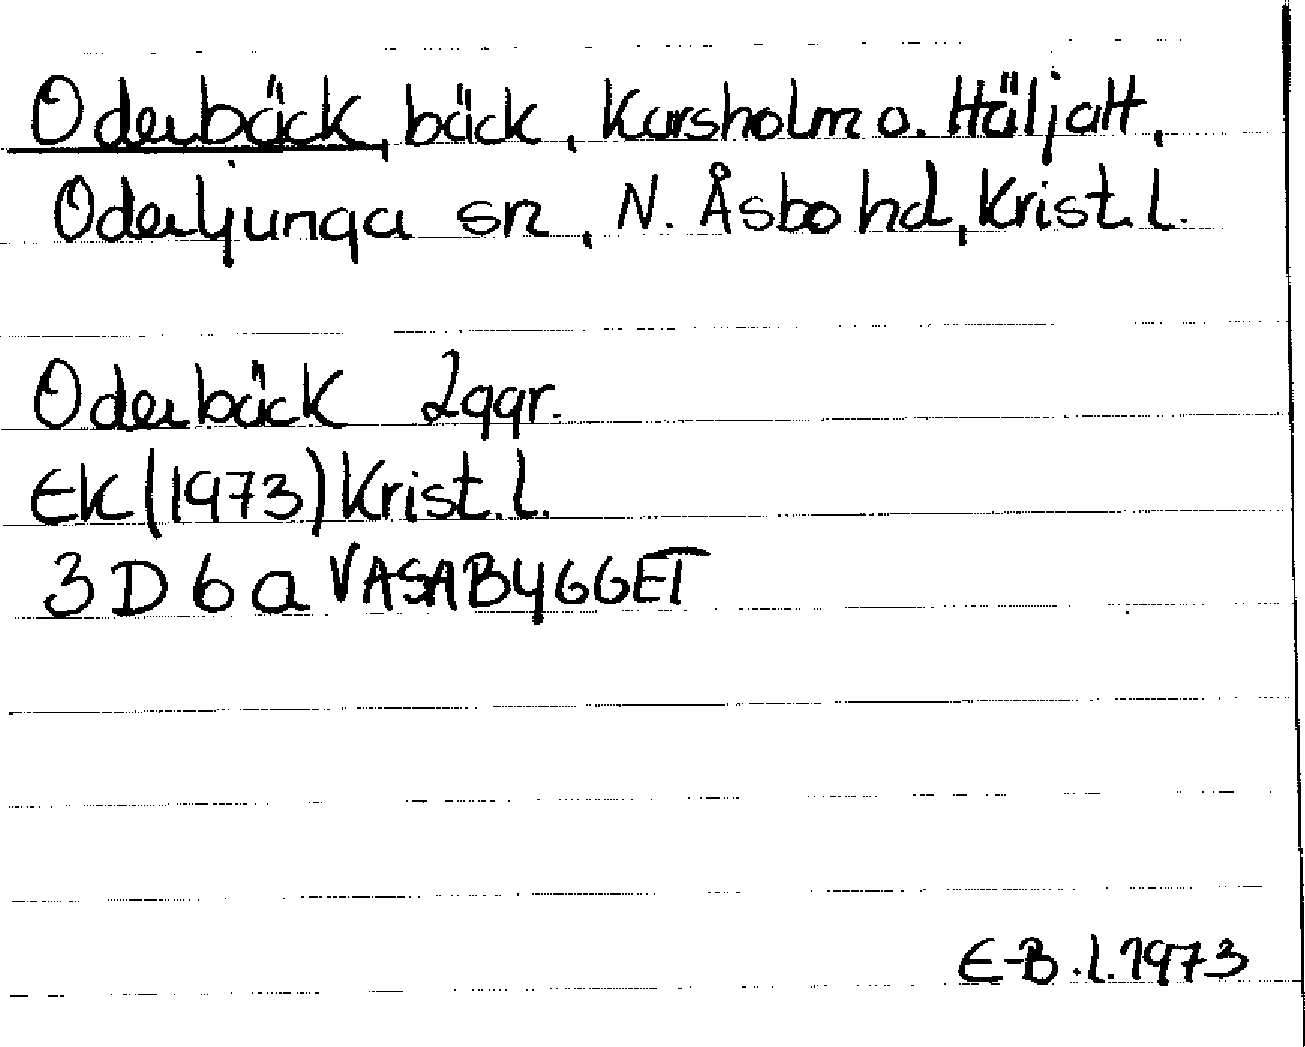 Oderbäck, bäck, Karsholm o. Häljalt,
Oderljunga sn, N. Åsbo hd, Krist. L.
Oderbäck 2ggr.
EK (1973) Krist. L.
3 D 6 a VASABYGGET
E-B. L. 1973